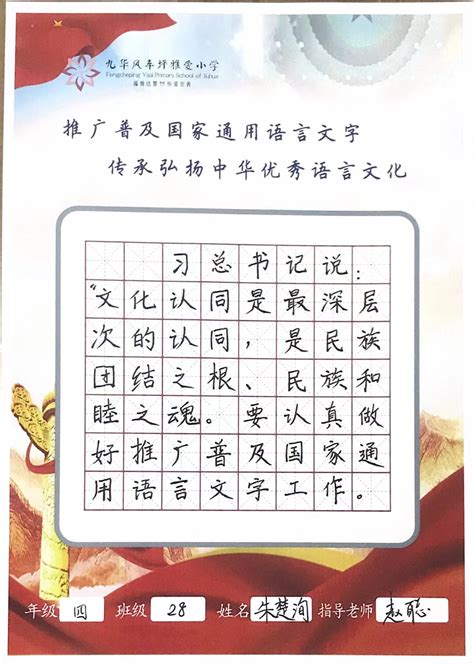 九华风车坪雅爱小学
Fengcheping Yaai Primary School of Jiuhua
推广普及国家通用语言文字
传承弘扬中华优秀语言文化
习总书记说：
“文化认同是最深层
次的认同，是民族
团结之根、民族和
睦之魂。要认真做
好推广普及国家通
用语言文字工作。
年级 四 班级 28 姓名 朱楚洵 指导老师 赵聪